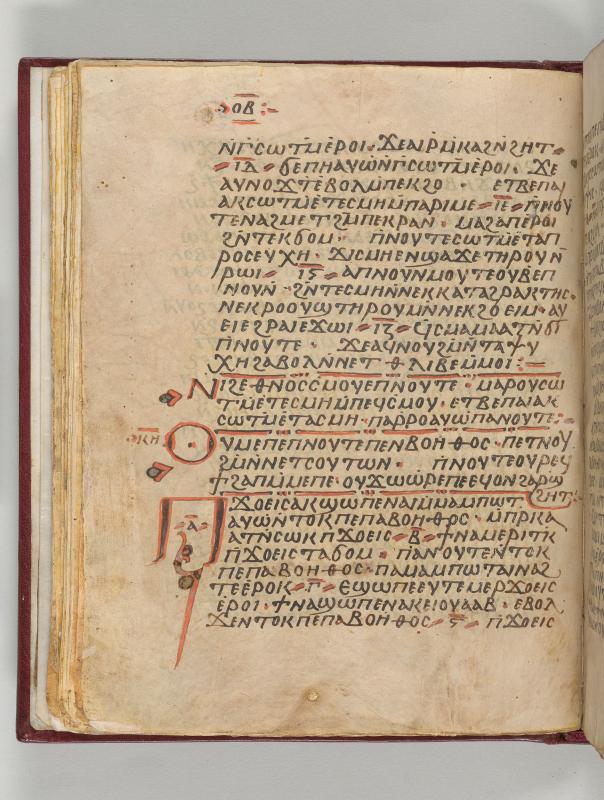 ⲟⲃ
ⲛⲅ̄ⲥⲱⲧⲙ̄ⲉⲣⲟⲓ ϫⲉⲁⲓⲣⲙ̄ⲕⲁϩⲛϩⲏⲧ
ⲓⲇ ϭⲉⲡⲏⲁⲩⲱⲛⲅ̄ⲥⲱⲧⲙ̄ⲉⲣⲟⲓ ϫⲉ
ⲁⲩⲛⲟϫⲧⲉⲃⲟⲗⲙ̄ⲡⲉⲕϩⲟ ⲉⲧⲃⲉⲡⲁⲓ
ⲁⲕⲥⲱⲧⲙ̄ⲉⲧⲉⲥⲙⲏⲙ̄ⲡⲁⲣⲓⲙⲉ ⲓⲉ ⲡⲛⲟⲩ
ⲧⲉⲛⲁϩⲙⲉⲧϩⲙ̄ⲡⲉⲕⲣⲁⲛ ⲙⲁϩⲁⲡⲉⲣⲟⲓ
ϩⲛ̄ⲧⲉⲕϭⲟⲙ ⲡⲛⲟⲩⲧⲉⲥⲱⲧⲙ̄ⲉⲧⲁⲡ
ⲣⲟⲥⲉⲩⲭⲏ ϫⲓⲥⲙⲏⲉⲛϣⲁϫⲉⲧⲏⲣⲟⲩⲛ̄
ⲣⲱⲓ ⲓⲋ ⲁⲡⲛⲟⲩⲛⲙⲟⲩⲧⲉⲟⲩⲃⲉⲡ
ⲛⲟⲩⲛ ϩⲛ̄ⲧⲉⲥⲙⲏⲛ̄ⲛⲉⲕⲕⲁⲧⲁϩⲣⲁⲕⲧⲏⲥ
ⲛⲉⲕⲣⲟⲟⲩϣⲧⲏⲣⲟⲩⲙⲛ̄ⲛⲉⲕϩⲟⲉⲓⲙ ⲁⲩ
ⲉⲓⲉϩⲣⲁⲓⲉϫⲱⲓ ⲓⲍ ϥⲥⲙⲁⲙⲁⲁⲧⲛ̄ϭⲓ
ⲡⲛⲟⲩⲧⲉ ϫⲉⲁϥⲛⲟⲩϩⲙⲛ̄ⲧⲁⲯⲩ
ⲭⲏϩⲁⲃⲟⲗⲛ̄ⲛⲉⲧⲑⲗⲓⲃⲉⲙ̄ⲙⲟⲓ
ⲛⲓϩⲉⲑⲛⲟⲥⲥⲙⲟⲩⲉⲡⲛⲟⲩⲧⲉ ⲙⲁⲣⲟⲩⲥⲱ
ⲧⲙ̄ⲉⲧⲉⲥⲙⲏⲙ̄ⲡⲉϥⲥⲙⲟⲩ ⲉⲧⲃⲉⲡⲁⲓⲁⲕ
ⲥⲱⲧⲙ̄ⲉⲧⲁⲥⲙⲏ ⲡⲁⲣⲣⲟⲁⲩⲱⲡⲁⲛⲟⲩⲧⲉ
ⲕⲏ ⲟⲩⲙⲉⲡⲉⲡⲛⲟⲩⲧⲉⲡⲉⲛⲃⲟⲏⲑⲟⲥ ⲡⲉⲧⲛⲟⲩ
ϩⲙ̄ⲛ̄ⲛⲉⲧⲥⲟⲩⲧⲱⲛ ⲡⲛⲟⲩⲧⲉⲟⲩⲣⲉϥ
ϯϩⲁⲡⲙ̄ⲙⲉⲡⲉ ⲟⲩϫⲱⲱⲣⲉⲡⲉⲉϥⲟⲛϩⲁⲣϣ̄
ϩⲏⲧ
ⲁ ⲡϫⲟⲉⲓⲥⲁⲕϣⲱⲡⲉⲛⲁⲓⲙ̄ⲙⲁⲙⲡⲱⲧ
ⲁⲩⲱⲛ̄ⲧⲟⲕⲡⲉⲡⲁⲃⲟⲏⲑⲟⲥ ⲙ̄ⲡⲣⲕⲁ
ⲁⲧⲛ̄ⲥⲱⲕⲡϫⲟⲉⲓⲥ ⲃ ϯⲛⲁⲙⲉⲣⲓⲧⲕ
ⲡϫⲟⲉⲓⲥⲧⲁϭⲟⲙ ⲡⲁⲛⲟⲩⲧⲉⲛ̄ⲧⲟⲕ
ⲡⲉⲡⲁⲃⲟⲏⲑⲟⲥ ⲡⲁⲙⲁⲙⲡⲱⲧⲁⲓⲛⲁϩ
ⲧⲉⲉⲣⲟⲕ ⲅ ⲉϣⲱⲡⲉⲉⲩⲧⲉⲙⲉⲣϫⲟⲉⲓⲥ
ⲉⲣⲟⲓ ϯⲛⲁϣⲱⲡⲉⲛⲁⲕⲉⲓⲟⲩⲁⲁⲃ ⲉⲃⲟⲗ
ϫⲉⲛⲧⲟⲕⲡⲉⲡⲁⲃⲟⲏⲑⲟⲥ ⲋ ⲡϫⲟⲉⲓⲥ